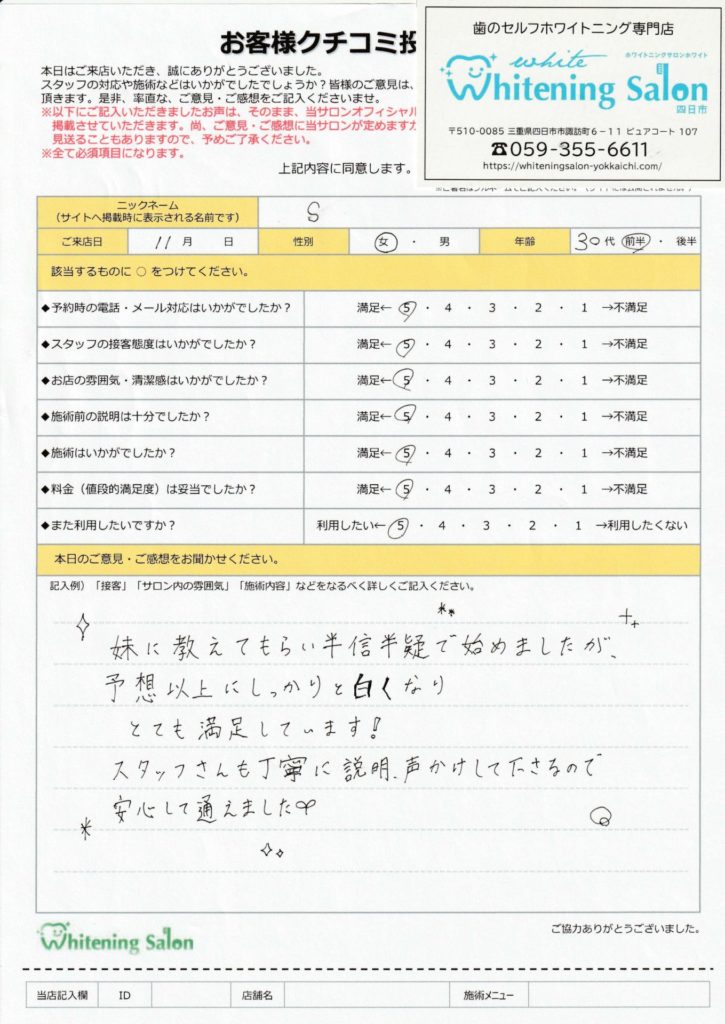 お客様クチコミ投
本日はご来店いただき、誠にありがとうございました。
スタッフの対応や施術などはいかがでしたでしょうか？皆様のご意見は、
頂きます。是非、率直な、ご意見・ご感想をご記入くださいませ。
※以下にご記入いただきましたお声は、そのまま、当サロンオフィシャル
掲載させていただきます。尚、ご意見・ご感想に当サロンが定めますガ
見送ることもありますので、予めご了承ください。
※全て必須項目になります。
上記内容に同意します。
歯のセルフホワイトニング専門店
white
ホワイトニングサロンホワイト
Whitening Salon
四日市
〒510-0085 三重県四日市市諏訪町6－11 ピュアコート 107
☎059-355-6611
https://whiteningsalon-yokkaichi.com/
ニックネーム
（サイトへ掲載時に表示される名前です） S
ご来店日 11月 日 性別 女・男 年齢 30代 前半・後半
該当するものに ○ をつけてください。
◆予約時の電話・メール対応はいかがでしたか？ 満足← 5・4・3・2・1 →不満足
◆スタッフの接客態度はいかがでしたか？ 満足← 5・4・3・2・1 →不満足
◆お店の雰囲気・清潔感はいかがでしたか？ 満足← 5・4・3・2・1 →不満足
◆施術前の説明は十分でしたか？ 満足← 5・4・3・2・1 →不満足
◆施術はいかがでしたか？ 満足← 5・4・3・2・1 →不満足
◆料金（値段的満足度）は妥当でしたか？ 満足← 5・4・3・2・1 →不満足
◆また利用したいですか？ 利用したい← 5・4・3・2・1 →利用したくない
本日のご意見・ご感想をお聞かせください。
記入例）「接客」「サロン内の雰囲気」「施術内容」などをなるべく詳しくご記入ください。
妹に教えてもらい半信半疑で始めましたが、
予想以上にしっかりと白くなり
とても満足しています!
スタッフさんも丁寧に説明、声かけして下さるので
安心して通えました
Whitening Salon
ご協力ありがとうございました。
当店記入欄 ID 店舗名 施術メニュー